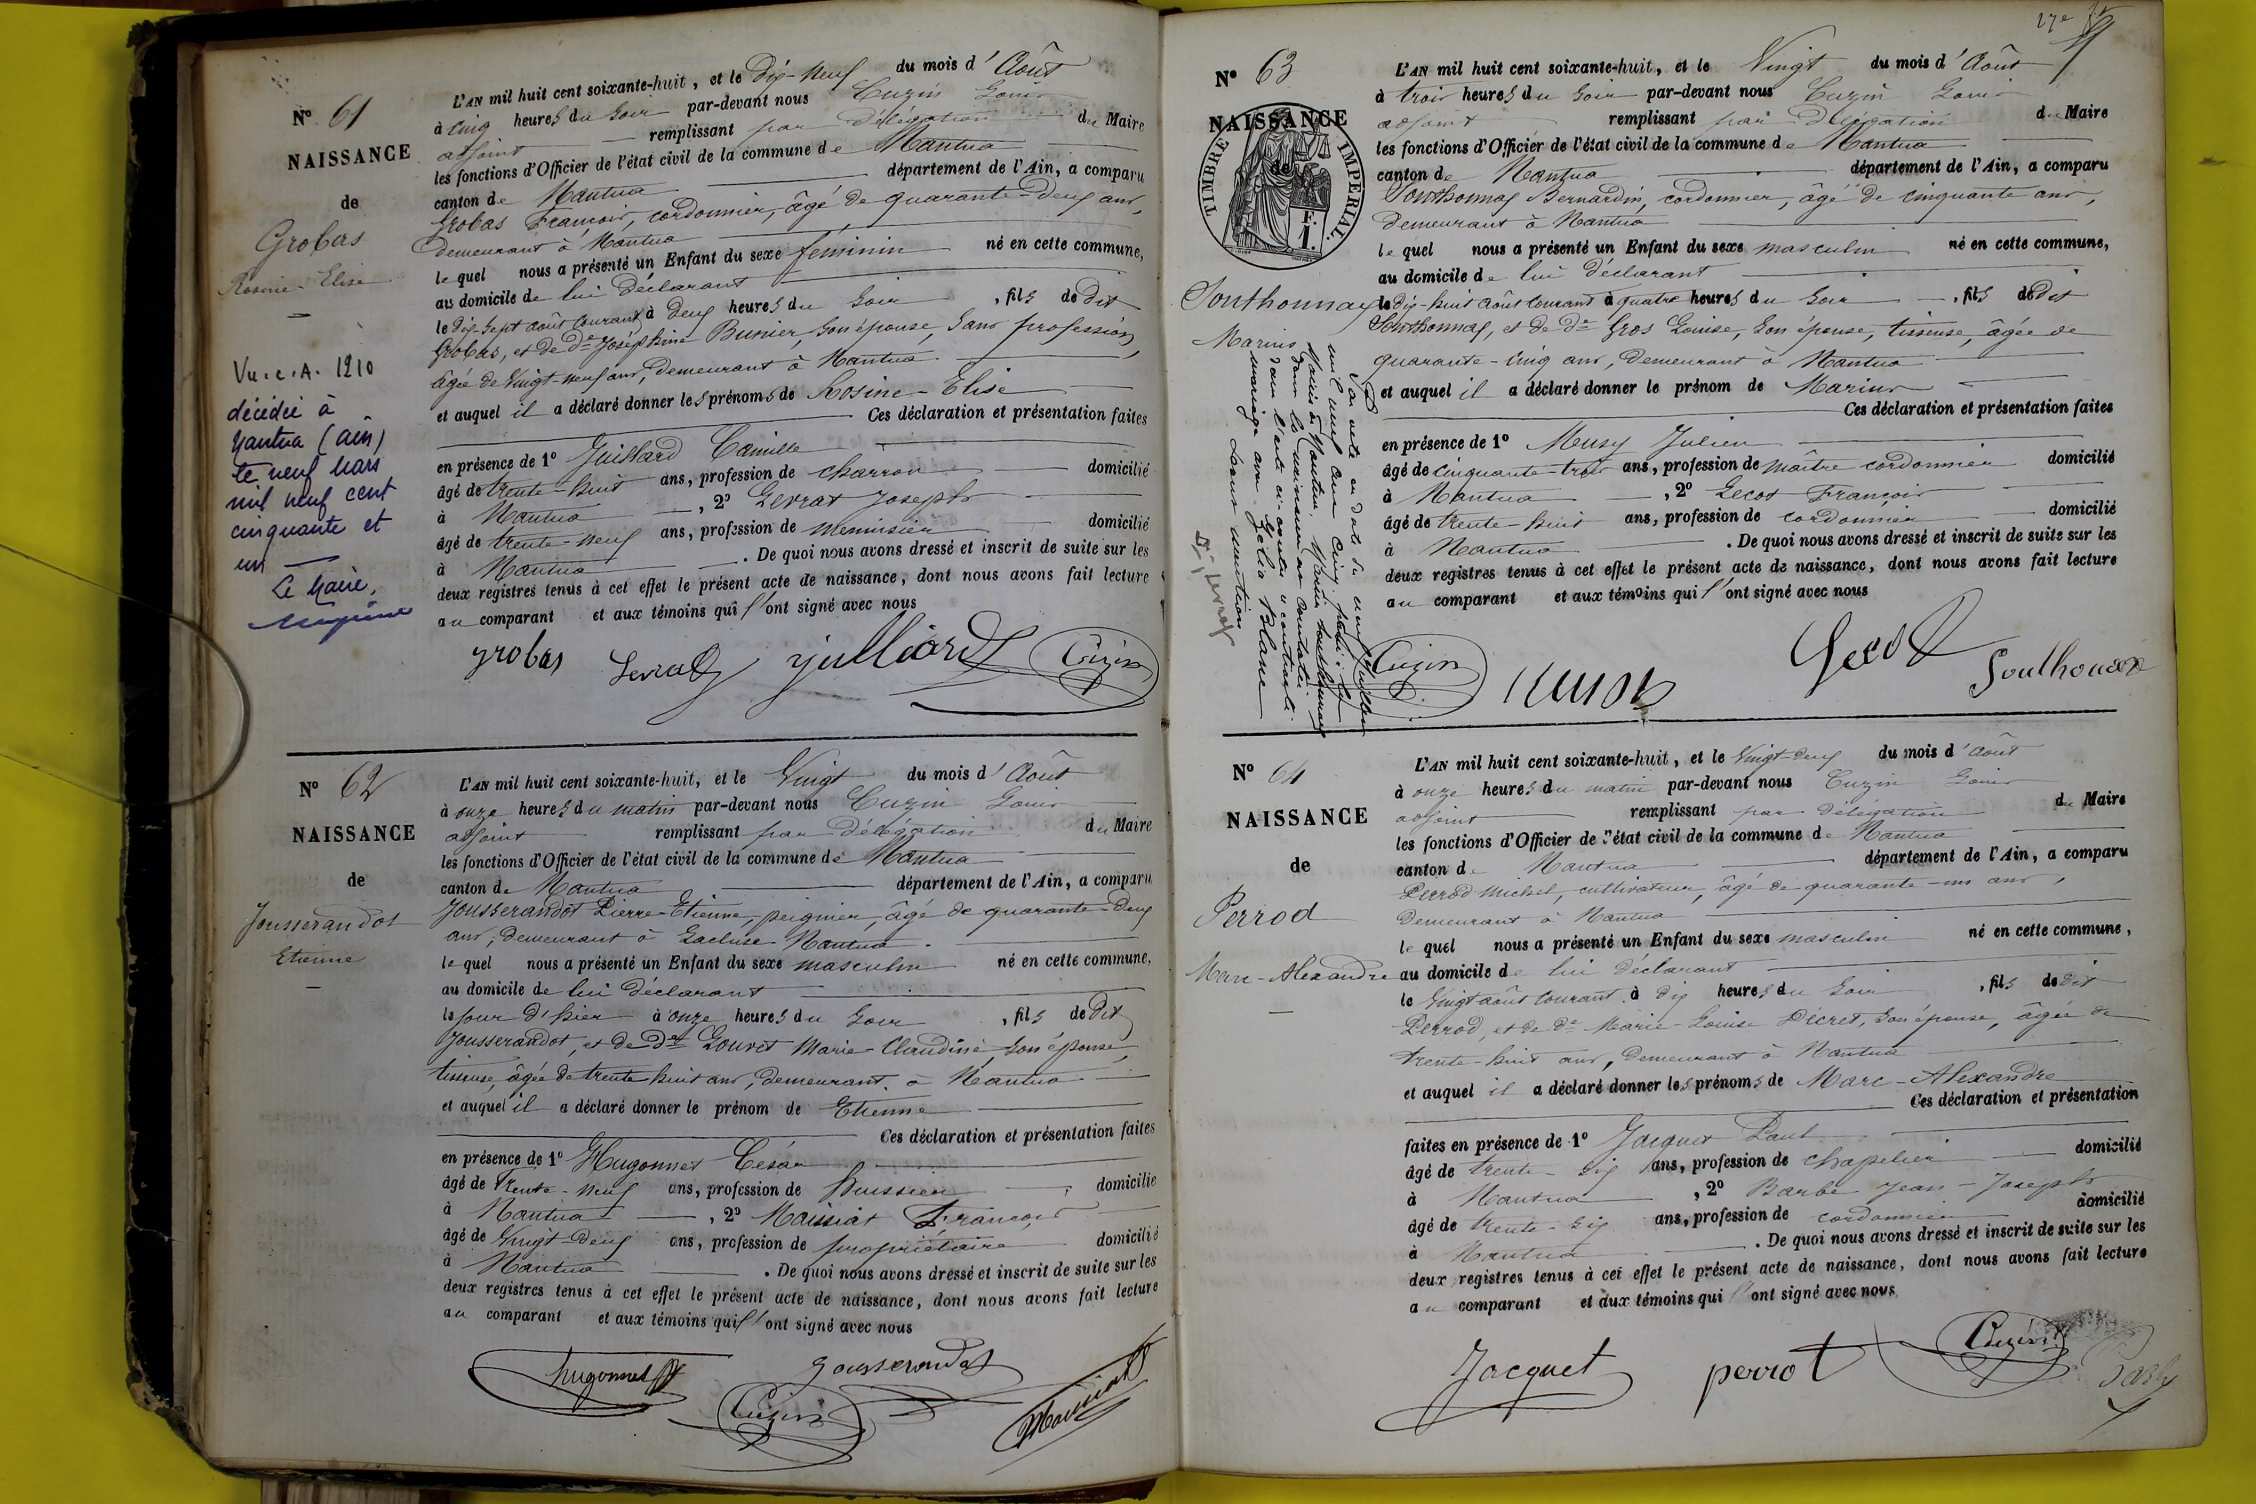 Nº 61
NAISSANCE
de
Grobas
Rosine-Elise
Vu. c. A. 1210
décédée à
Nantua (Ain)
le neuf Mars
mil neuf cent
cinquante et
un
Le Maire,
L'AN mil huit cent soixante-huit, et le Dix-Neuf du mois d'Août
à cinq heures du soir par-devant nous Cuzin Louis
adjoint remplissant par délégation du Maire
les fonctions d'Officier de l'état civil de la commune de Nantua
canton de Nantua département de l'Ain, a comparu
Grobas François, cordonnier, âgé de quarante-deux ans,
demeurant à Nantua
lequel nous a présenté un Enfant du sexe féminin né en cette commune,
au domicile de lui déclarant
le dix-sept août courant à deux heures du soir, fils de dit
Grobas, et de de Joséphine Bunier, son épouse, sans profession,
âgée de vingt-neuf ans, demeurant à Nantua.
et auquel il a déclaré donner les prénoms de Rosine-Elise
Ces déclaration et présentation faites
en présence de 1º Juillard Camille
âgé de trente-huit ans, profession de charron domicilié
à Nantua, 2º Levrat Joseph
âgé de trente-neuf ans, profession de menuisier domicilié
à Nantua. De quoi nous avons dressé et inscrit de suite sur les
deux registres tenus à cet effet le présent acte de naissance, dont nous avons fait lecture
au comparant et aux témoins qui l'ont signé avec nous
grobas Levrat Julliard Cuzin
Nº 62
NAISSANCE
de
Jousserandot
Etienne
L'AN mil huit cent soixante-huit, et le Vingt du mois d'Août
à onze heures du matin par-devant nous Cuzin Louis
adjoint remplissant par délégation du Maire
les fonctions d'Officier de l'état civil de la commune de Nantua
canton de Nantua département de l'Ain, a comparu
Jousserandot Pierre-Etienne, peignier, âgé de quarante-deux
ans, demeurant à Nantua.
lequel nous a présenté un Enfant du sexe masculin né en cette commune,
au domicile de lui déclarant
le jour d'hier à onze heures du soir, fils de dit
Jousserandot, et de de Louvet Marie-Claudine, son épouse,
tisseuse, âgée de trente huit ans, demeurant à Nantua
et auquel il a déclaré donner le prénom de Etienne
Ces déclaration et présentation faites
en présence de 1º Hugonnet César
âgé de trente-neuf ans, profession de huissier, domicilié
à Nantua, 2º Maissiat François
âgé de vingt-deux ans, profession de propriétaire domicilié
à Nantua. De quoi nous avons dressé et inscrit de suite sur les
deux registres tenus à cet effet le présent acte de naissance, dont nous avons fait lecture
au comparant et aux témoins qui l'ont signé avec nous
hugonnet Jousserandot
Cuzin Maissiat
27e
Nº 63
NAISSANCE
de
TIMBRE IMPERIAL
F. I.
Southonnax
Marius
Par acte en date du
mil neuf cent cinq
Mairie de Nantua, Marius Southonnax
dans la commune
dans l'acte ci-contre a contracté
mariage avec Zélia Blanc
Dont mention
L'AN mil huit cent soixante-huit, et le Vingt du mois d'Août
à trois heures du soir par-devant nous Cuzin Louis
adjoint remplissant par délégation du Maire
les fonctions d'Officier de l'état civil de la commune de Nantua
canton de Nantua département de l'Ain, a comparu
Southonnax Bernardin, cordonnier, âgé de cinquante ans,
demeurant à Nantua
lequel nous a présenté un Enfant du sexe masculin né en cette commune,
au domicile de lui déclarant
le dix-huit août courant à quatre heures du soir, fils de dit
Southonnax, et de de Gros Louise, son épouse, tisseuse, âgée de
quarante-cinq ans, demeurant à Nantua
et auquel il a déclaré donner le prénom de Marius
Ces déclaration et présentation faites
en présence de 1º Musy Julien
âgé de cinquante-trois ans, profession de maître cordonnier domicilié
à Nantua, 2º Lecot François
âgé de trente-huit ans, profession de cordonnier domicilié
à Nantua. De quoi nous avons dressé et inscrit de suite sur les
deux registres tenus à cet effet le présent acte de naissance, dont nous avons fait lecture
au comparant et aux témoins qui l'ont signé avec nous
Cuzin Lecot Southonax
Nº 64
NAISSANCE
de
Perrod
Marc-Alexandre
L'AN mil huit cent soixante-huit, et le Vingt-deux du mois d'Août
à onze heures du matin par-devant nous Cuzin Louis
adjoint remplissant par délégation du Maire
les fonctions d'Officier de l'état civil de la commune de Nantua
canton de Nantua département de l'Ain, a comparu
Perrod Michel, cultivateur, âgé de quarante-un ans,
demeurant à Nantua
lequel nous a présenté un Enfant du sexe masculin né en cette commune,
au domicile de lui déclarant
le vingt août courant à dix heures du soir, fils de dit
Perrod, et de de Marie-Louise Décret, son épouse, âgée de
trente-huit ans, demeurant à Nantua
et auquel il a déclaré donner les prénoms de Marc-Alexandre
Ces déclaration et présentation
faites en présence de 1º Jacquet Paul
âgé de trente-six ans, profession de chapelier domicilié
à Nantua, 2º Barbe Jean-Joseph
âgé de trente-six ans, profession de cordonnier domicilié
à Nantua. De quoi nous avons dressé et inscrit de suite sur les
deux registres tenus à cet effet le présent acte de naissance, dont nous avons fait lecture
au comparant et aux témoins qui l'ont signé avec nous
Jacquet perrot Cuzin Barbe